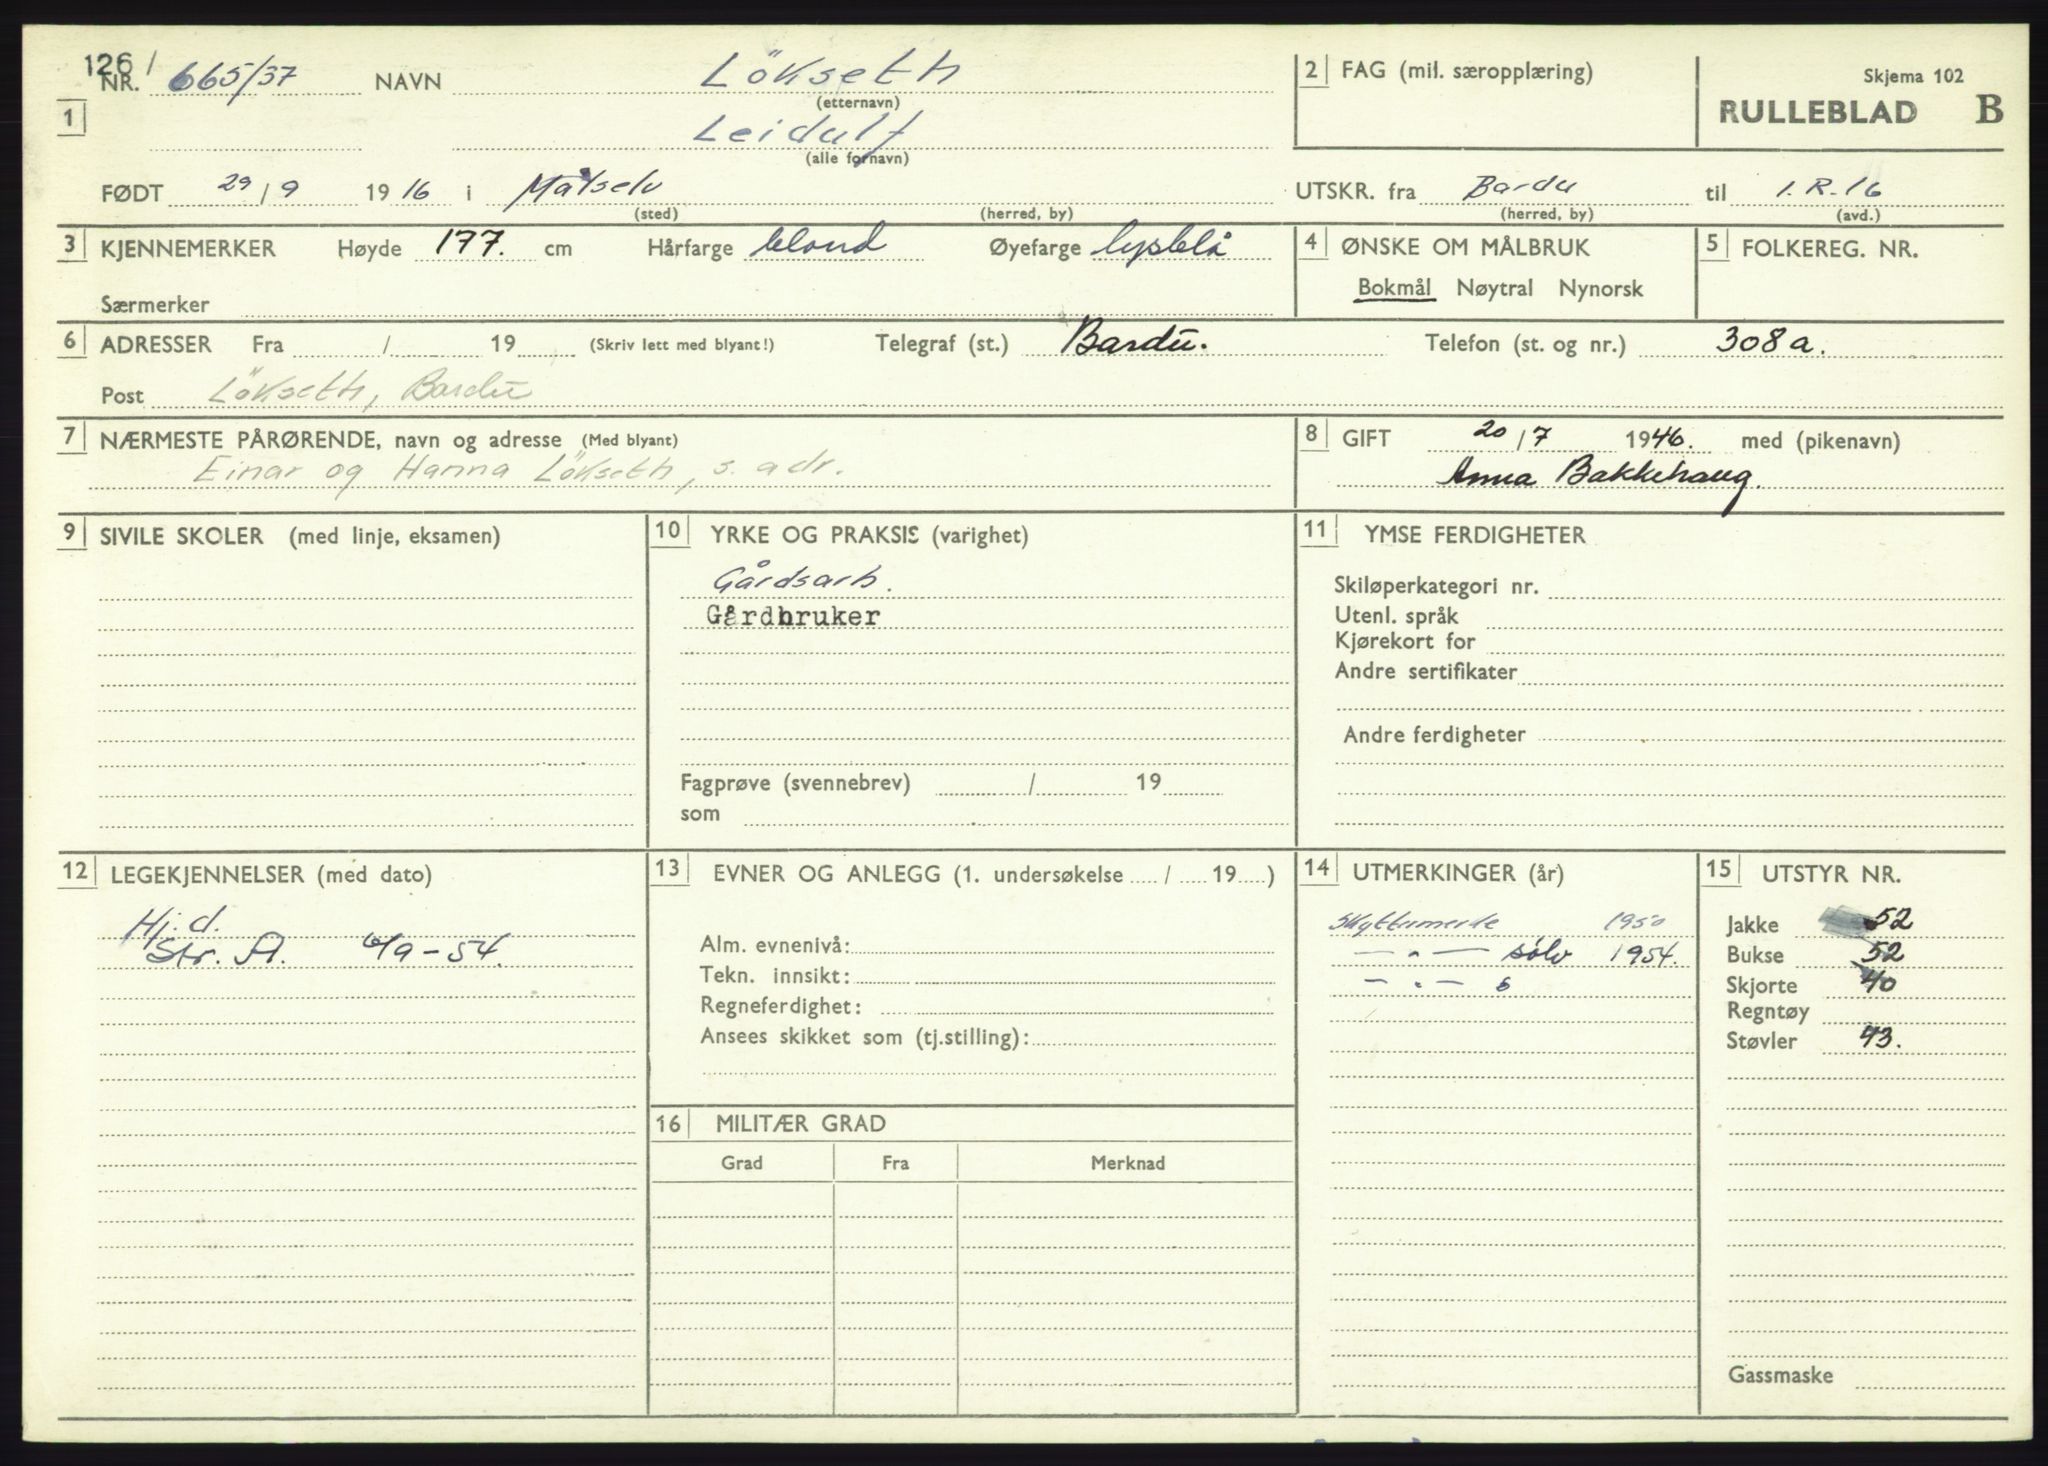 126/
NR. 665/37 NAVN Lökseth
(etternavn)
1
Leidulf
(alle fornavn)
FØDT 29/9 1916 i Målselv
(sted) (herred, by)
2 FAG (mil. særopplæring)
Skjema 102
RULLEBLAD B
UTSKR. fra Bardu til I.R.16
(herred, by) (avd.)
3 KJENNEMERKER Høyde 177. cm Hårfarge blond Øyefarge lysblå
Særmerker
4 ØNSKE OM MÅLBRUK
Bokmål Nøytral Nynorsk
5 FOLKEREG. NR.
6 ADRESSER Fra / 19 (Skriv lett med blyant!) Telegraf (st.) Bardu. Telefon (st. og nr.) 308a.
Post Lökseth, Bardu
7 NÆRMESTE PÅRØRENDE, navn og adresse (Med blyant)
Einar og Hanna Lökseth, s. adr.
8 GIFT 20/7 1946. med (pikenavn)
Anna Bakkehaug.
9 SIVILE SKOLER (med linje, eksamen)
10 YRKE OG PRAKSIS (varighet)
Gårdsarb.
Gårdbruker
Fagprøve (svennebrev) / 19
som
11 YMSE FERDIGHETER
Skiløperkategori nr.
Utenl. språk
Kjørekort for
Andre sertifikater
Andre ferdigheter
12 LEGEKJENNELSER (med dato)
Hj. d.
Str. A. 6/9-54.
13 EVNER OG ANLEGG (1. undersøkelse / 19 )
Alm. evnenivå:
Tekn. innsikt:
Regneferdighet:
Ansees skikket som (tj.stilling):
14 UTMERKINGER (år)
Skyttermerke 1950
— " — sølv 1954.
— " —
15 UTSTYR NR.
Jakke 52
Bukse 52
Skjorte 40
Regntøy
Støvler 43.
Gassmaske
16 MILITÆR GRAD
Grad Fra Merknad